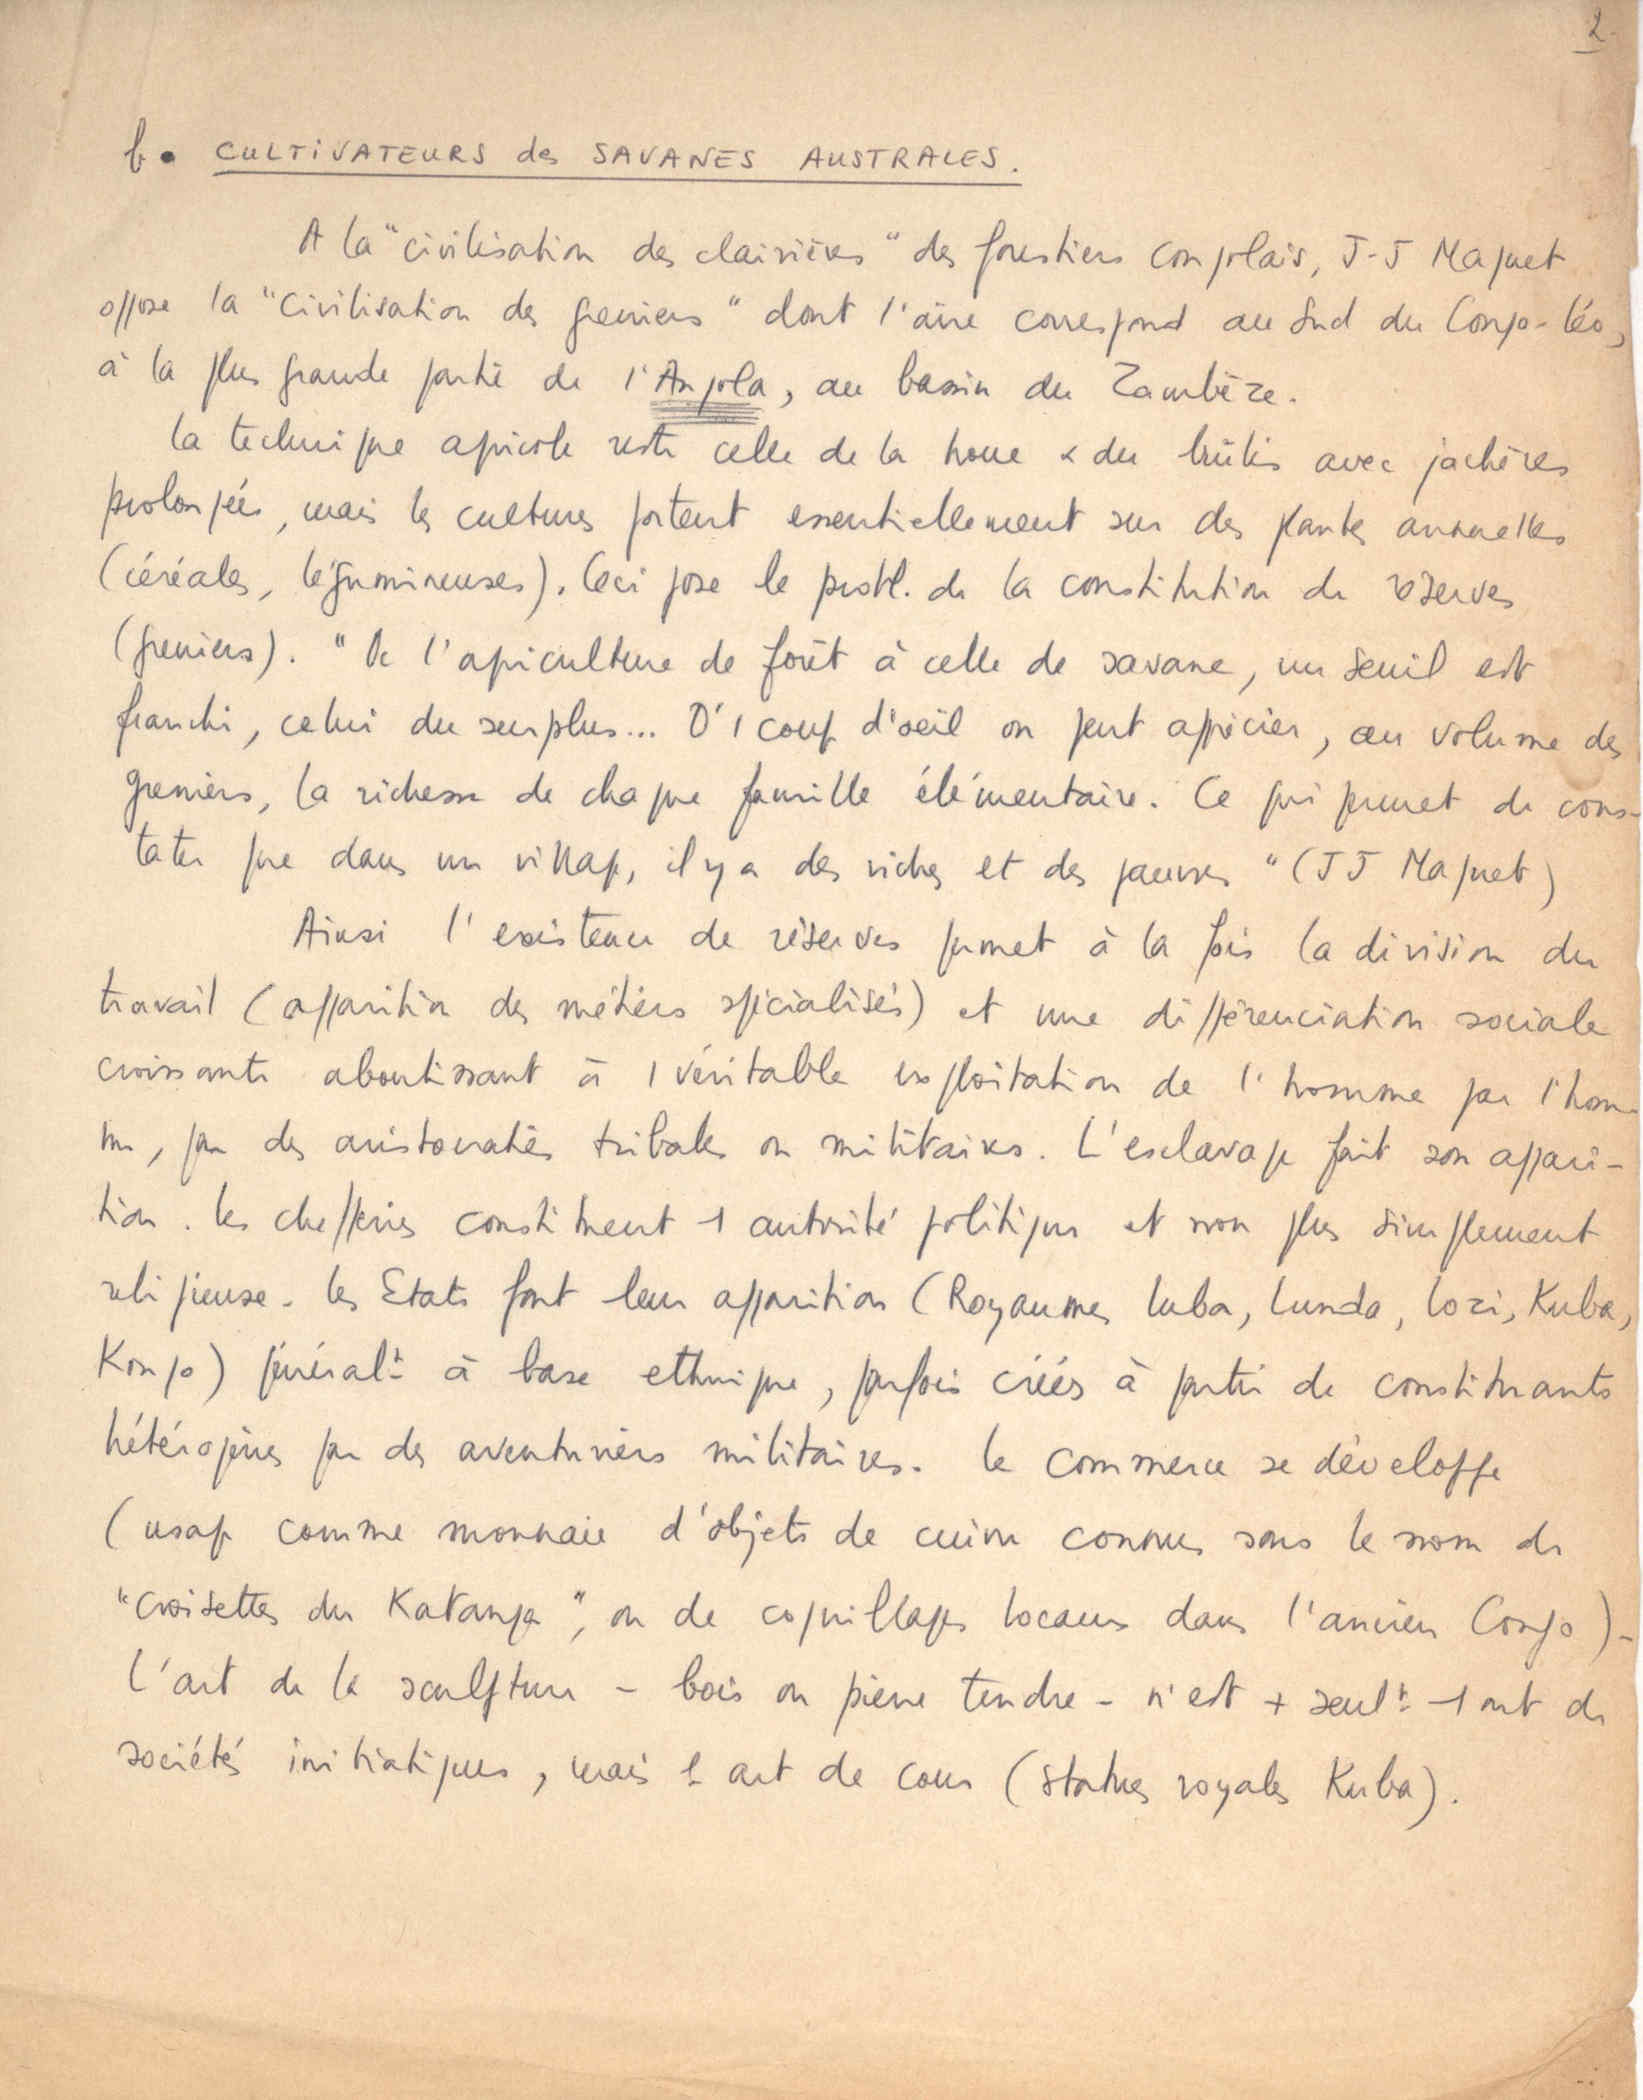 2.
b. CULTIVATEURS des SAVANES AUSTRALES.
A la "civilisation des clairières" des forestiers congolais, J-J Maquet
oppose la "civilisation des greniers" dont l'aire correspond au Sud du Congo-Léo,
à la plus grande partie de l'Angola, au bassin du Zambèze.
La technique agricole reste celle de la houe & du brûlis avec jachères
prolongées, mais les cultures portent essentiellement sur des plantes annuelles
(céréales, légumineuses). Ceci pose le probl. de la constitution de réserves
(greniers). "De l'agriculture de forêt à celle de savane, un seuil est
franchi, celui du surplus... D'1 coup d'oeil on peut apprécier, au volume des
greniers, la richesse de chaque famille élémentaire. Ce qui permet de cons-
tater que dans un village, il y a des riches et des pauvres" (JJ Maquet)
Ainsi l'existence de réserves permet à la fois la division du
travail (apparition des métiers spécialisés) et une différenciation sociale
croissante aboutissant à 1 véritable exploitation de l'homme par l'hom-
me, par des aristocraties tribales ou militaires. L'esclavage fait son appari-
tion. Les chefferies constituent 1 autorité politique et non plus simplement
religieuse. Les Etats font leur apparition (Royaumes Luba, Lunda, Lozi, Kuba,
Kongo) généralt à base ethnique, parfois créés à partir de constituants
hétérogènes par des aventuriers militaires. Le commerce se développe
(usage comme monnaie d'objets de cuivre connus sous le nom de
"croisettes du Katanga", ou de coquillages locaux dans l'ancien Congo).
L'art de la sculpture - bois ou pierre tendre - n'est + seult 1 art de
sociétés initiatiques, mais 1 art de cour (statues royales Kuba).